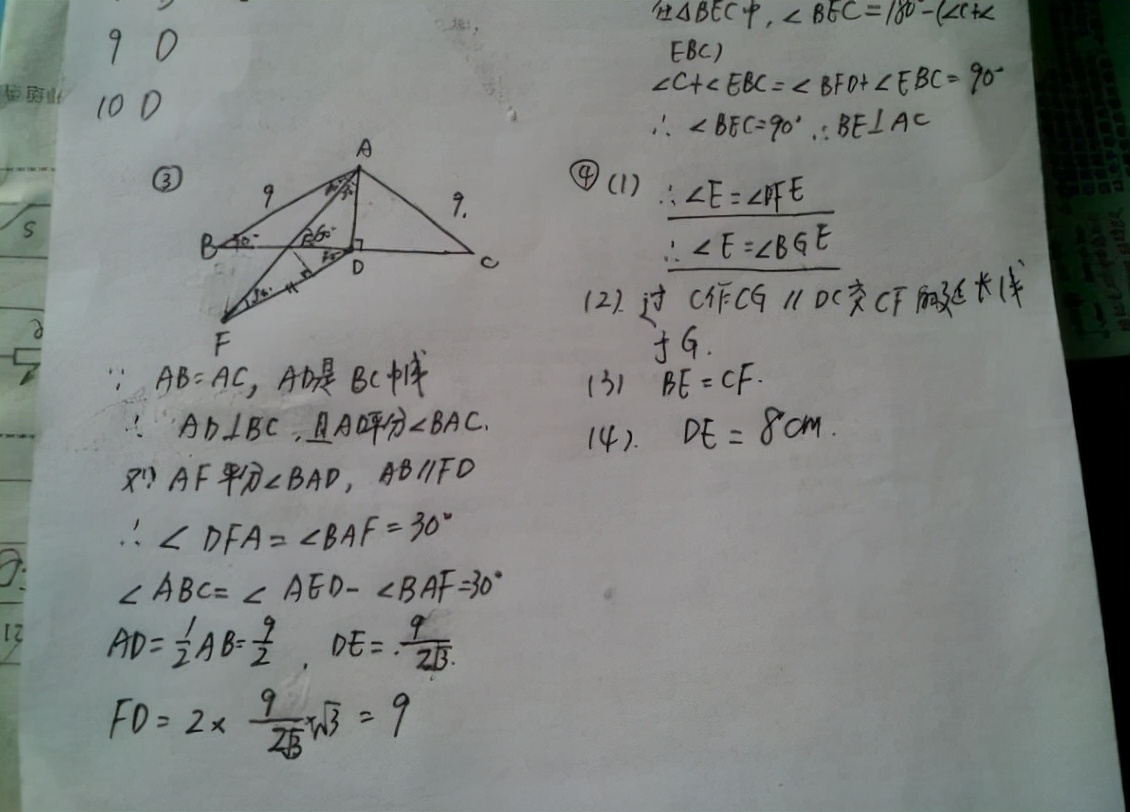 9 D
10 D
在△BEC中,∠BEC=180°-(∠C+∠
EBC)
∠C+∠EBC=∠BFD+∠EBC=90°
∴ ∠BEC=90°∴BE⊥AC
③
A
9
9.
B
30°
E
60°
D
C
F
30°
∵ AB=AC, AD是BC中线
∴ AD⊥BC,且AD平分∠BAC.
又∵AF平分∠BAD, AB//FD
∴∠DFA=∠BAF=30°
∠ABC=∠AED-∠BAF=30°
AD=1/2AB=9/2, DE=9/2√3.
FD=2×9/2√3×√3=9
④(1) ∴∠E=∠DFE
∴∠E=∠BGE
(2).过C作CG//DC交CF的延长线
于G.
(3) BE=CF.
(4). DE=8cm.